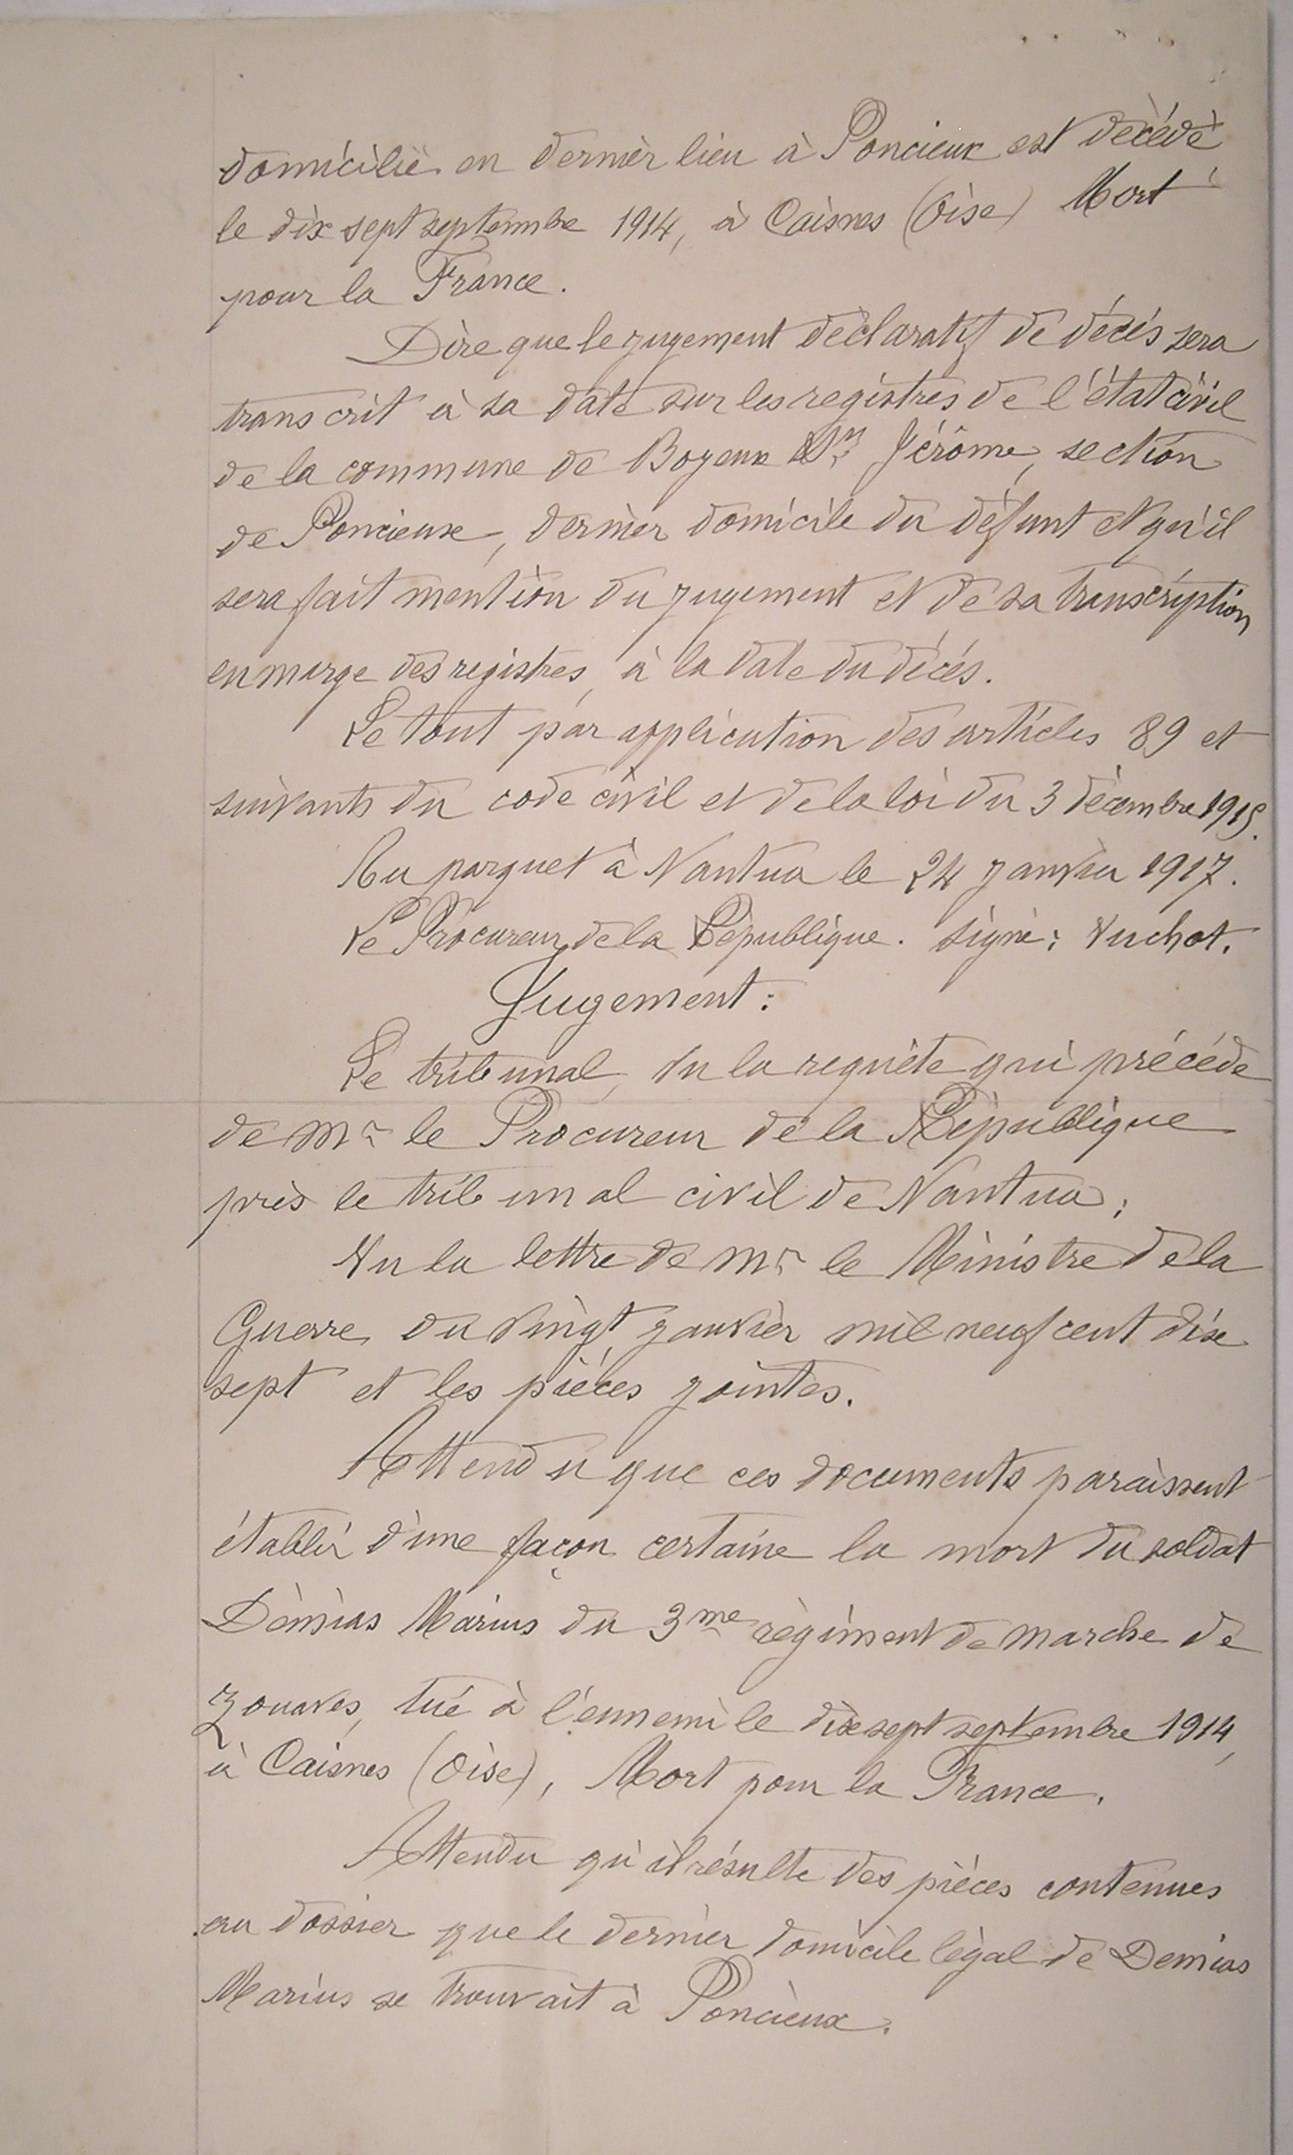 domicilié en dernièr lieu à Poncieux est décédé
le dix sept septembre 1914, à Caisnes (Oise) Mort
pour la France.
Dire que le jugement déclaratif de décés sera
transcrit à sa date sur les registres de l'état civil
de la commune de Boyeux St Jérôme, section
de Poncieux, dernier domicile du défunt et qu'il
sera fait mention du jugement et de sa transcription
en marge des registres, à la date du décés.
Le tout par application des articles 89 et
suivants du code civil et de la loi du 3 décembre 1915.
Au parquet à Nantua le 24 janvier 1917.
Le Procureur de la République. signé: Vuchot.
Jugement:
Le tribunal, vu la requête qui précéde
de Mr le Procureur de la République
près le tribunal civil de Nantua;
Vu la lettre de Mr le Ministre de la
Guerre du vingt janvier mil neuf cent dix
sept et les piéces jointes.
Attendu que ces documents paraissent
établir d'une façon certaine la mort du soldat
Démias Marius du 3me régiment de marche de
zouaves, tué à l'ennemi le dix sept septembre 1914,
à Caisnes (Oise), Mort pour la France.
Attendu qu'il résulte des piéces contenues
au dossier que le dernier domicile légal de Demias
Marius se trouvait à Poncieux.